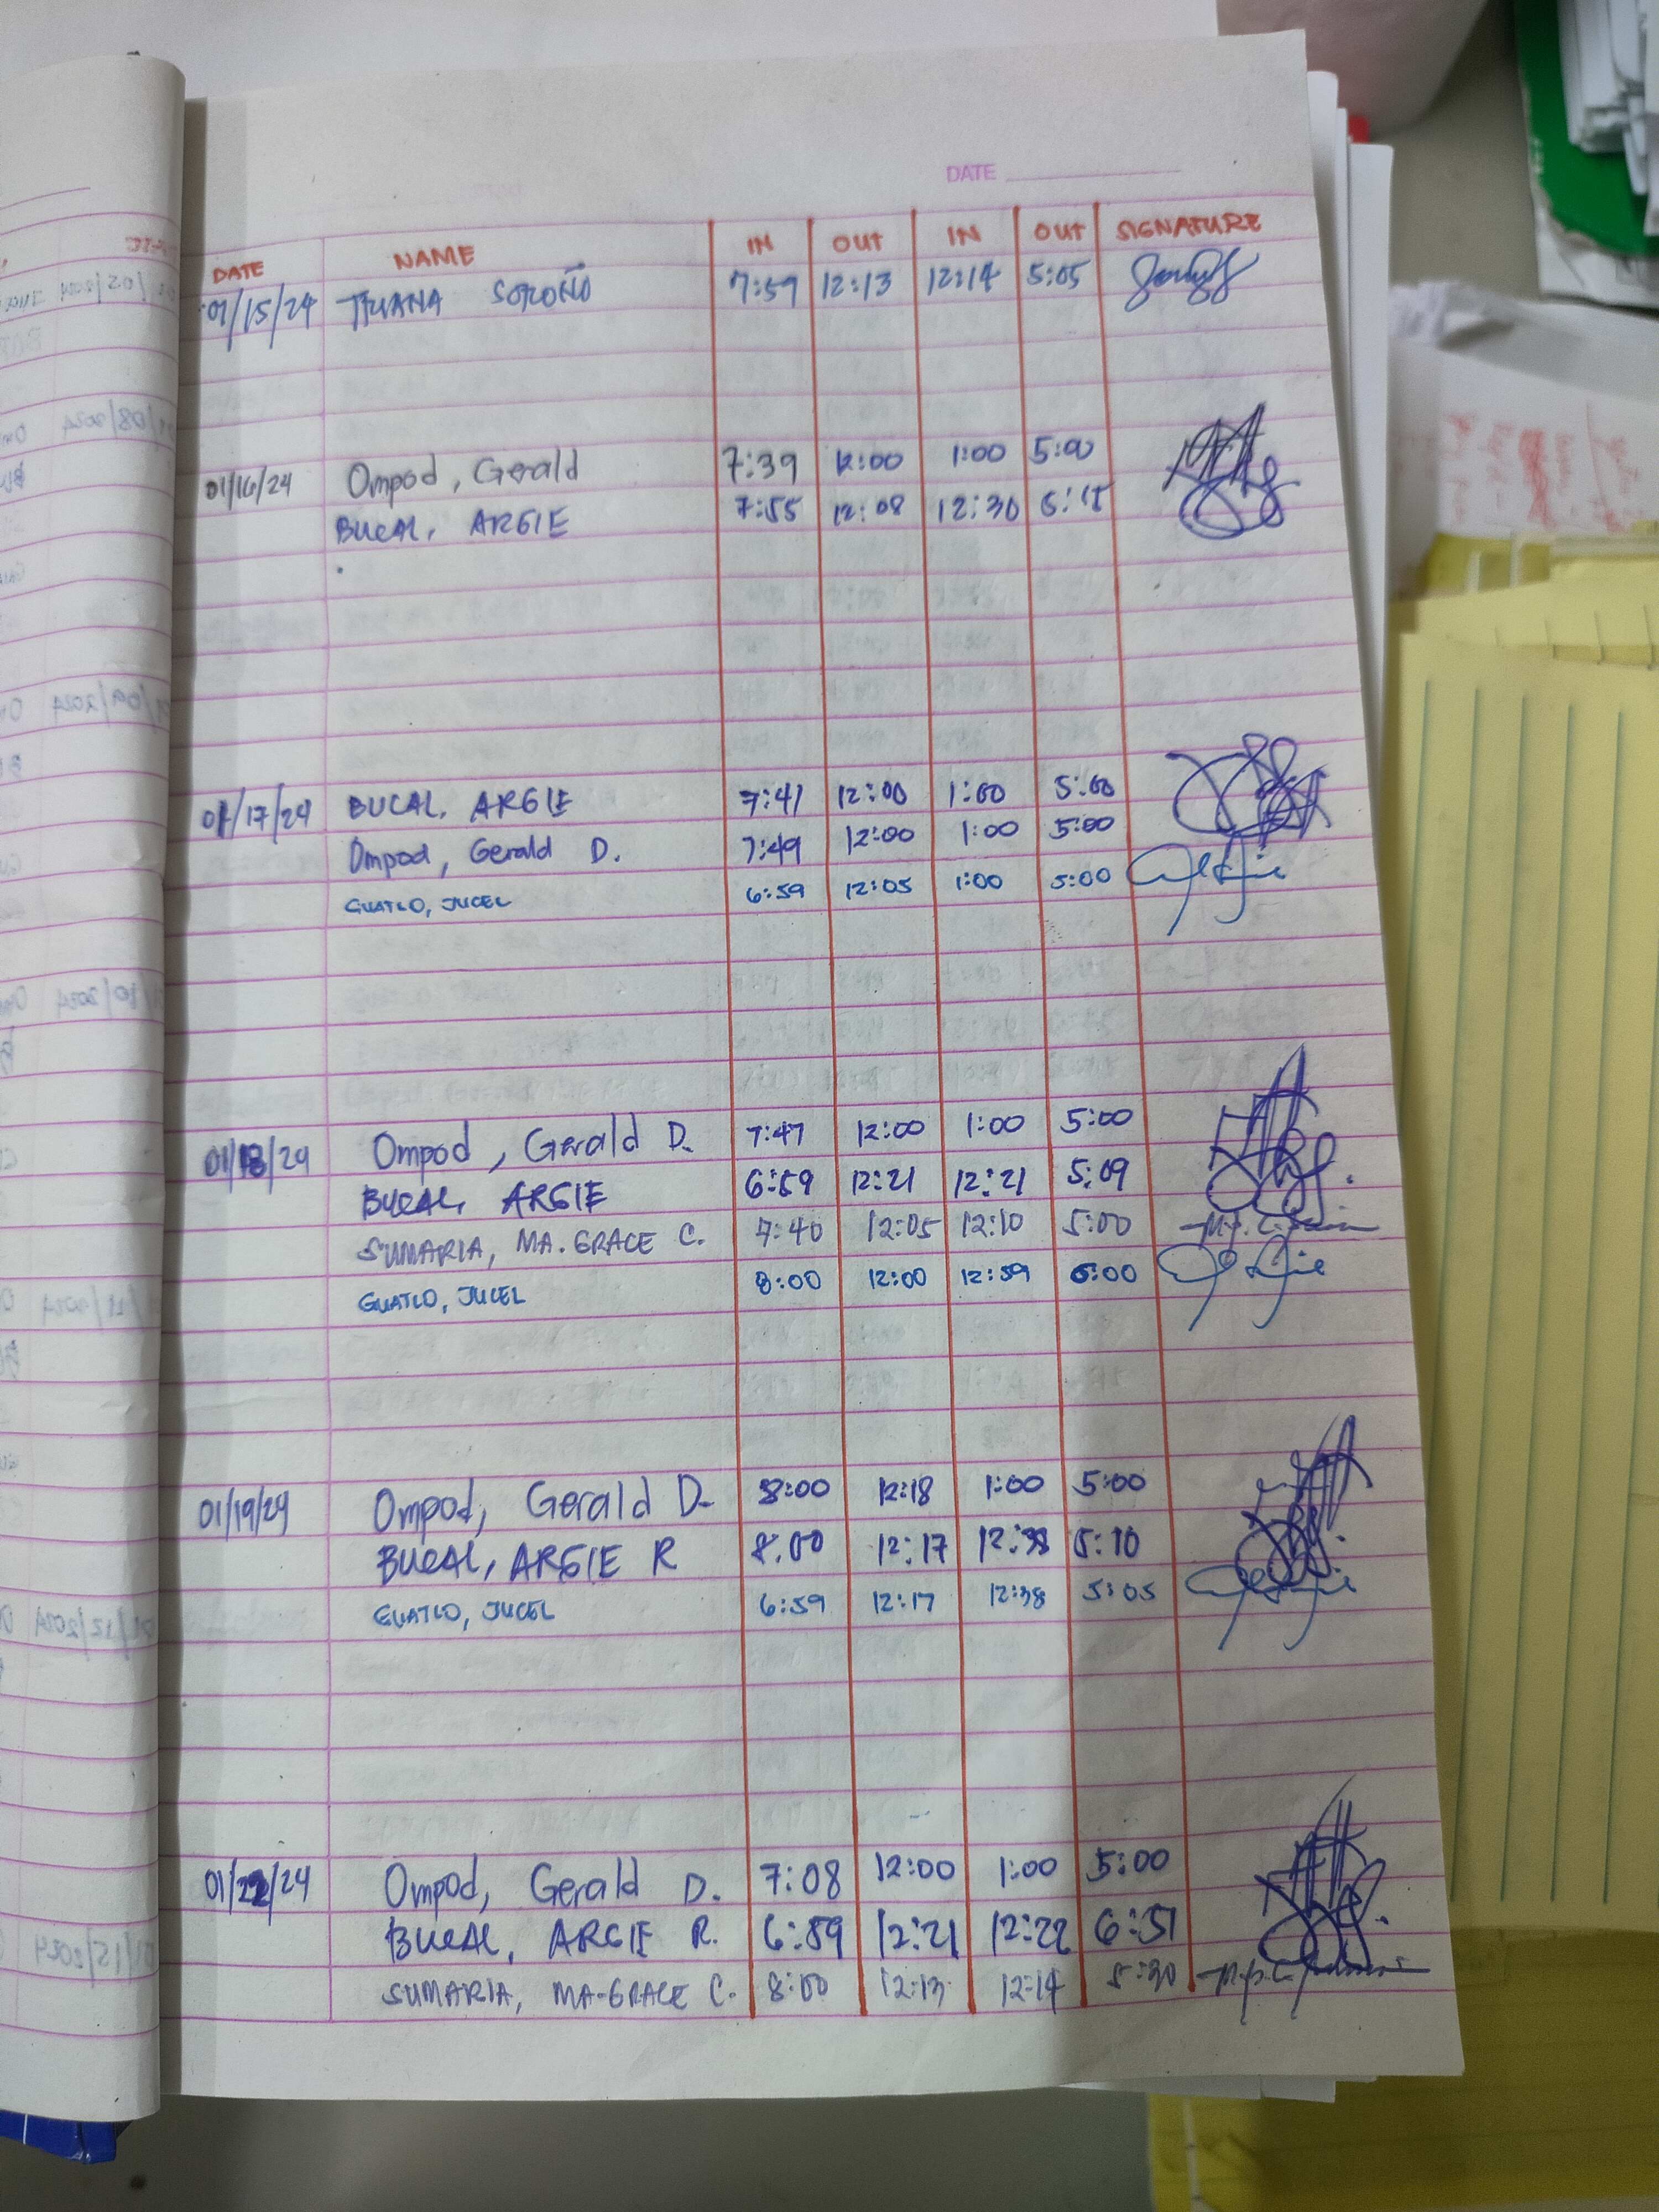 DATE
DATE NAME IN OUT IN OUT SIGNATURE
01/15/24 SOROÑO 7:59 12:13 12:14 5:05
01/16/24 Ompod, Gerald 7:39 12:00 1:00 5:00
BUCAL, ARGIE 7:55 12:08 12:30
01/17/24 BUCAL, ARGIE 7:41 12:00 1:00 5:00
Ompod, Gerald D. 7:49 12:00 1:00 5:00
GUATLO, JUCEL 6:59 12:05 1:00 5:00
01/18/24 Ompod, Gerald D. 7:47 12:00 1:00 5:00
BUCAL, ARGIE 6:59 12:21 12:21 5:09
SUMARIA, MA. GRACE C. 7:40 12:05 12:10 5:00
GUATLO, JUCEL 8:00 12:00 12:59
01/19/24 Ompod, Gerald D. 8:00 12:18 1:00 5:00
BUCAL, ARGIE R 8:00 12:17 12:38 5:10
GUATLO, JUCEL 6:59 12:17 12:38 5:05
01/22/24 Ompod, Gerald D. 7:08 12:00 1:00 5:00
BUCAL, ARGIE R. 6:59 12:21 12:22 6:51
SUMARIA, MA-GRACE C. 8:00 12:13 12:14 5:30